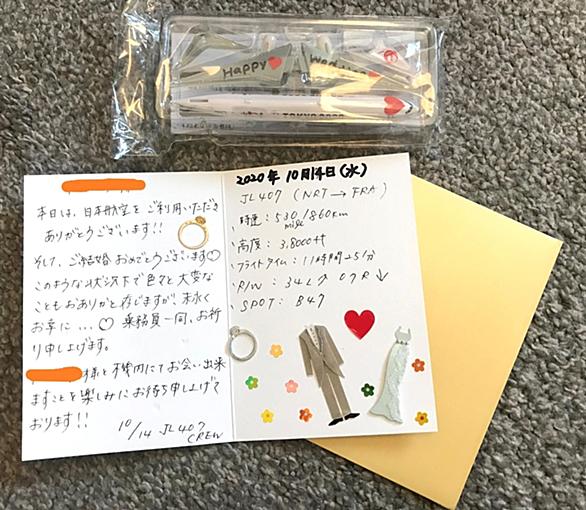 Happy
Wedd
TOKYO 2020
本日は、日本航空をご利用いただき
ありがとうございます!!
そして、ご結婚おめでとうございます♡
このような状況下で色々と大変な
こともおありかと存じますが、末永く
お幸に...♡ 乗務員一同、お祈
り申し上げます。
様と機内にてお会い出来
ますことを楽しみにお待ち申し上げて
おります!!
10/14 JL407
CREW
2020年 10月14日(水)
JL407 (NRT→FRA)
、時速:530/860km
mile
、高度:3,8000ft
、フライトタイム:11時間25分
、R/W:34L↑ 07R↓
、SPOT: B47